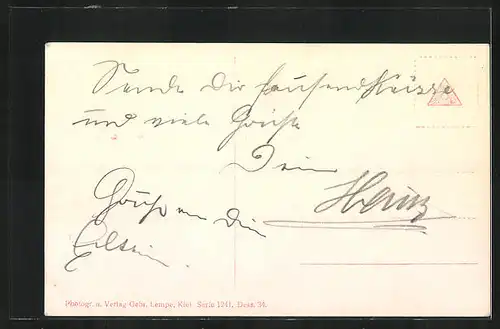 Sende Dir tausend Küsse
und viele Grüße
Dein
Heinz
Grüße an die
Eltern.
Photogr. u. Verlag Gebr. Lempe, Kiel. Serie 1241, Dess. 34.